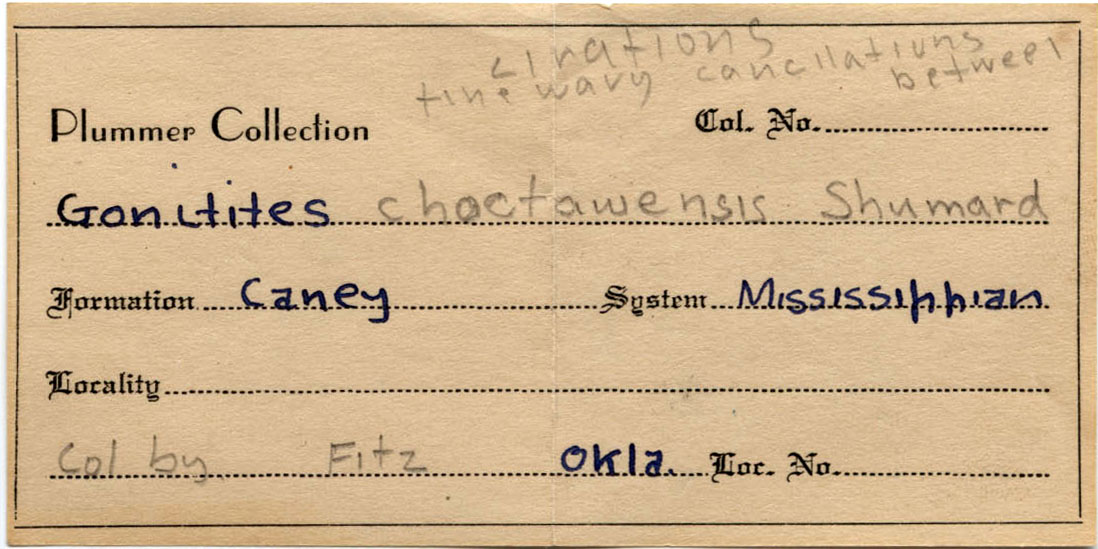 lirations
fine wavy cancllations
between
Plummer Collection
Col. No.
Gonitites choctawensis Shumard
Formation Caney System Mississippian
Locality
Col by. Fitz Okla. Loc. No.